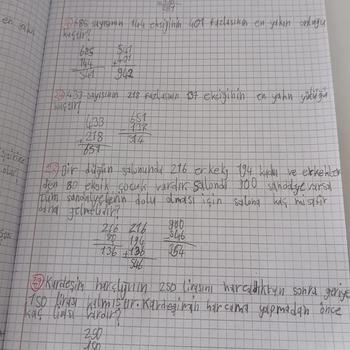 685 sayısının 144 eksiğinin 401 fazlasının en yakın onluğu
kaçtır?
685 541
144 +401
541 942
433 sayısının 218 fazlasının 137 eksiğinin en yakın yüzlüğü
kaçtır?
433 651
+218 137
651 514
Bir düğün salonunda 216 erkek, 194 kadın ve erkekler
den 80 eksik çocuk vardır. Salonda 900 sandalye varsa
tüm sandalyelerin dolu olması için salona kaç misafir
daha gelmelidir?
216 216 900
80 194 546
136 +136 354
546
Kardeşim harçlığının 250 lirasını harcadıktan sonra geriye
150 lirası kalmıştır. Kardeşimin harcama yapmadan önce
kaç lirası vardır?
250
150